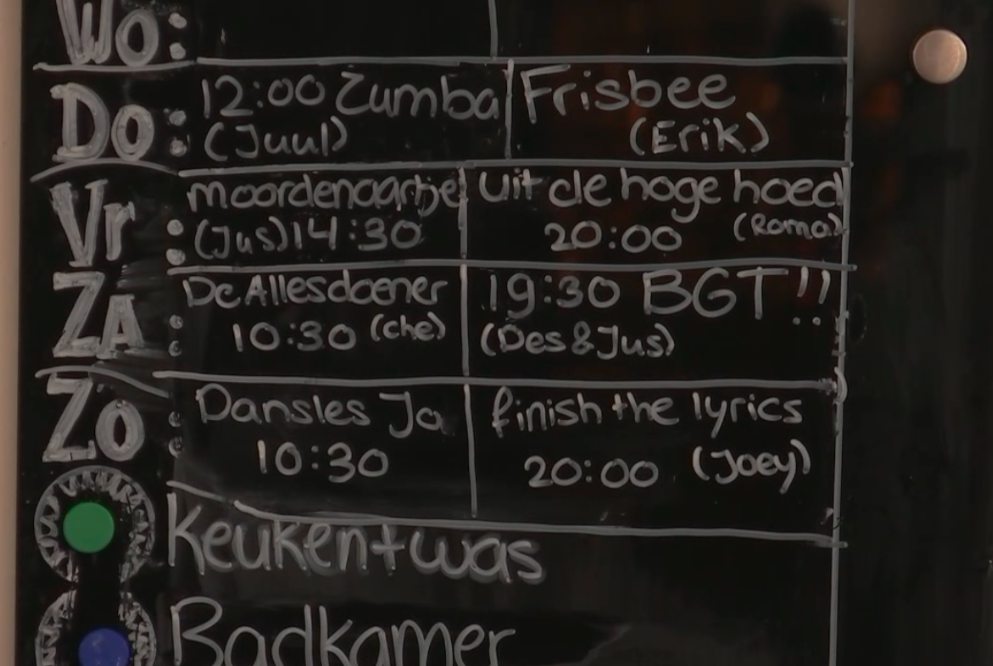 Wo:
Do: 12:00 Zumba Frisbee
(Juul) (Erik)
Vr: moordenaartje uit de hoge hoed
(Jus) 14:30 20:00 (Roma)
ZA: De Allesdoener 19:30 BGT!!
10:30 (che) (Des & Jus)
Zo: Dansles Jo finish the lyrics
10:30 20:00 (Joey)
Keuken + was
Badkamer